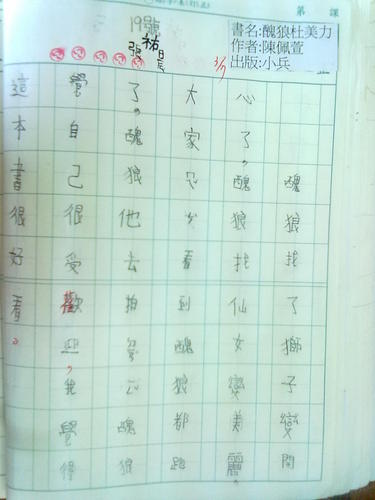 第 課
19號
書名:醜狼杜美力
作者:陳佩萱
出版:小兵
醜狼找了獅子變開
心了醜狼找仙女變美麗。
大家 看到醜狼都跑
了。醜狼他去拍 醜狼
覺自己很受歡迎,我覺得
這本書很好看。